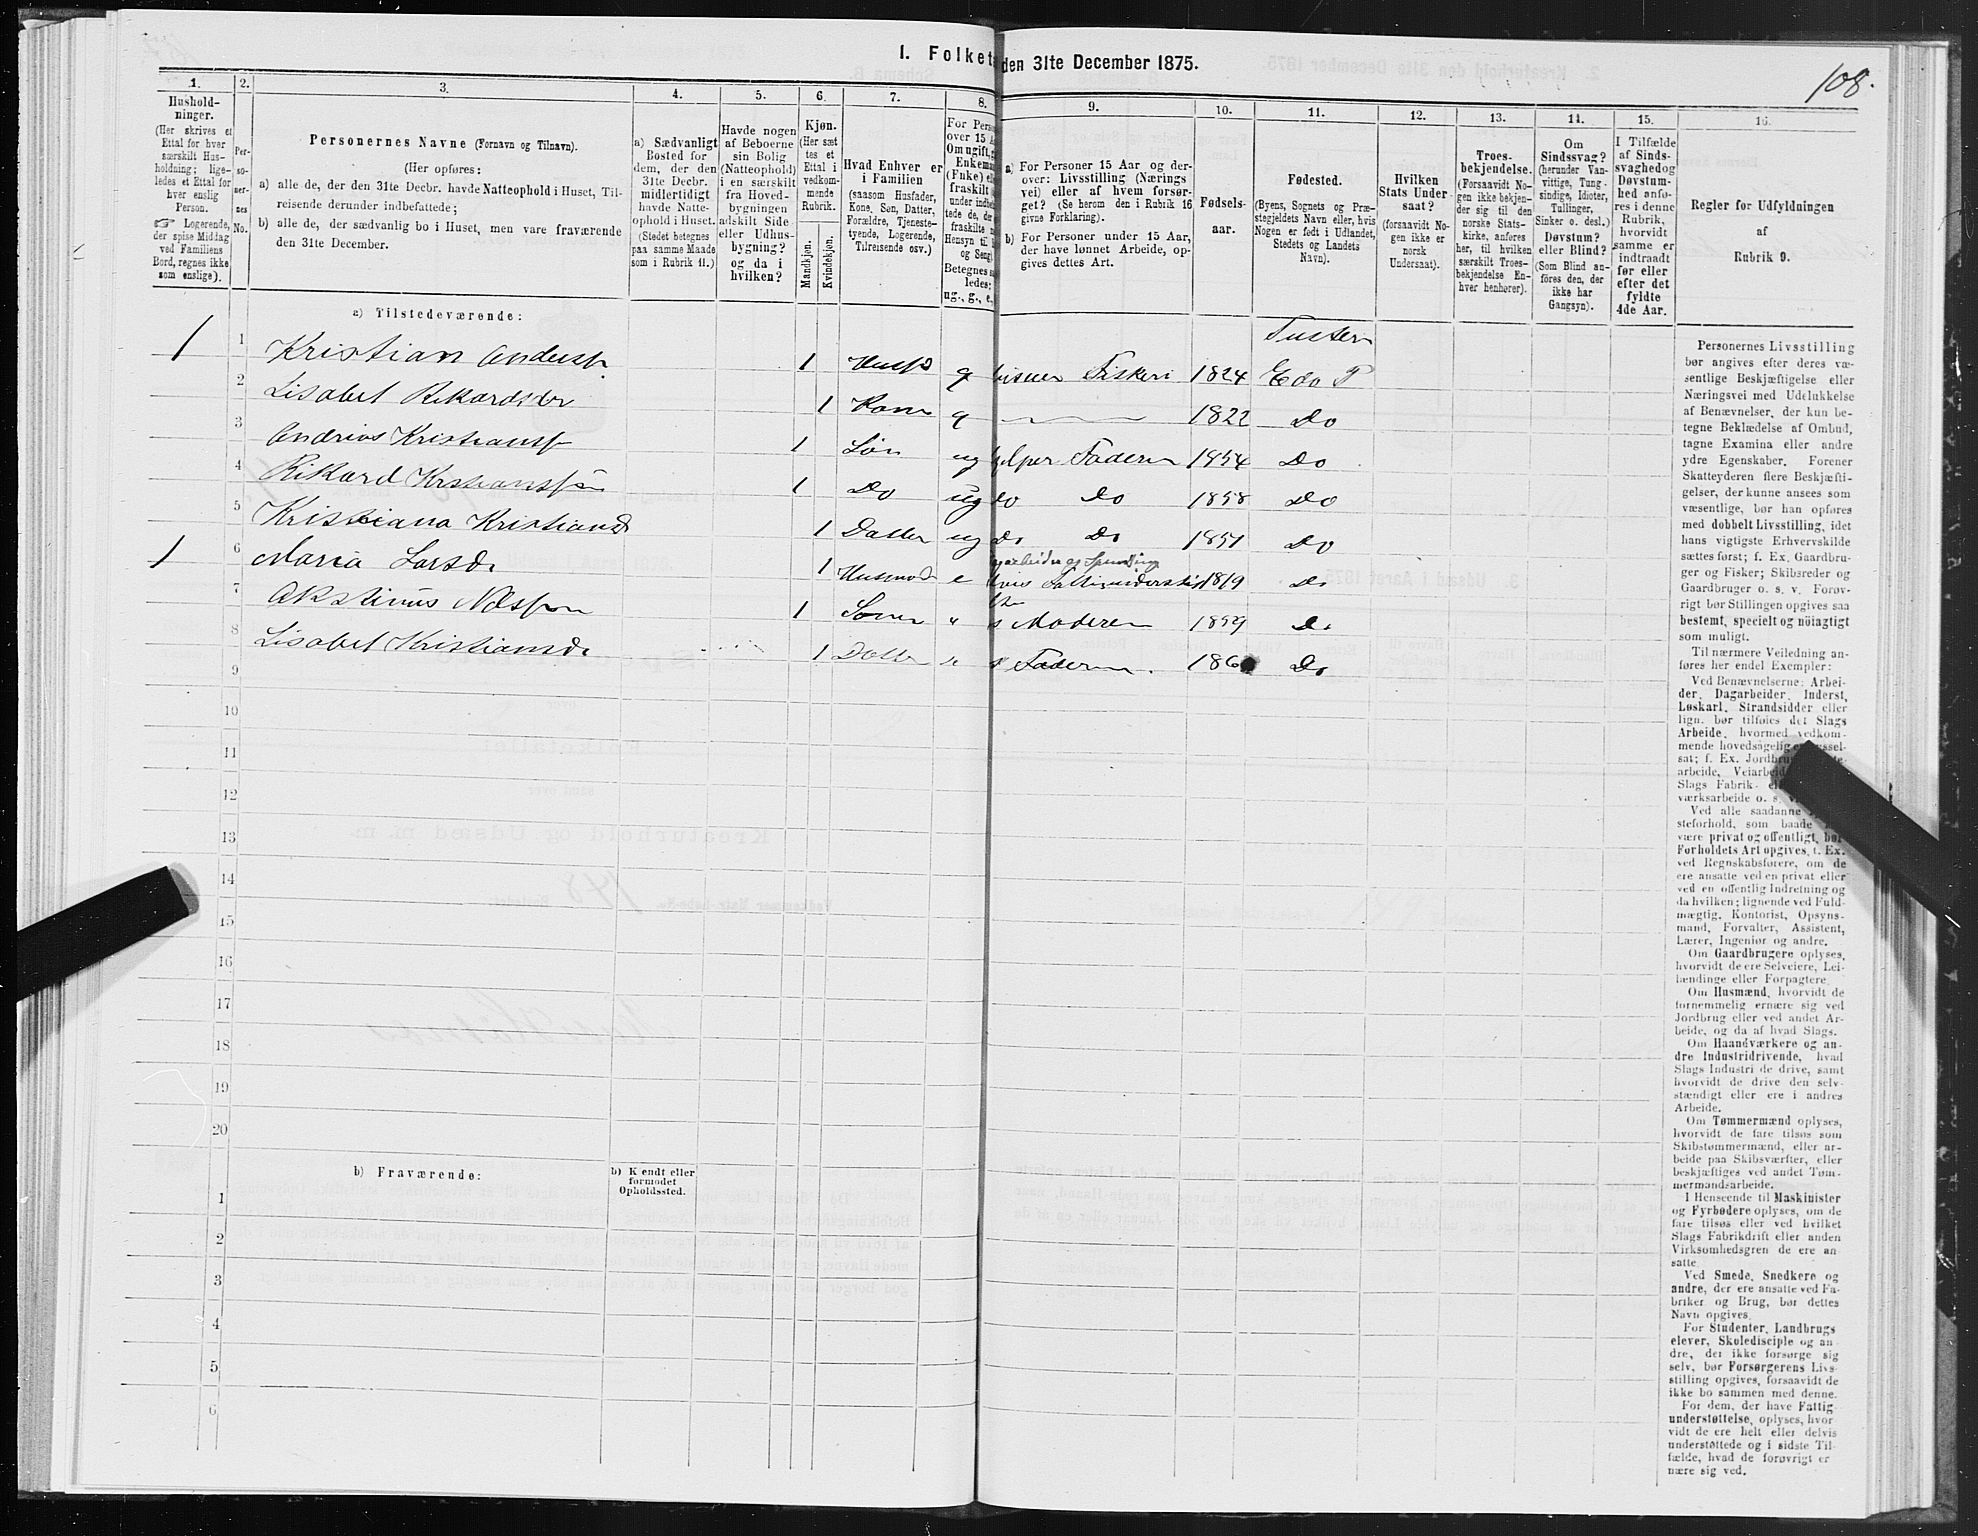 I. Folketæ den 31te December 1875.
108.
1. 2. 3. 4. 5. 6. 7. 8. 9. 10. 11. 12. 13. 14. 15. 16.
Hushold-
ninger.
(Her skrives et
Ettal for hver
særskilt Hus-
holdning; lige-
ledes et Ettal for
hver enslig
Person.
☞ Logerende,
der spise Middag
ved Familiens
Bord, regnes ikke
som enslige).
Per-
so-
ner-
nes
No.
Personernes Navne (Fornavn og Tilnavn).
(Her opføres:
a) alle de, der den 31te Decbr. havde Natteophold i Huset, Til-
reisende derunder indbefattede;
b) alle de, der sædvanlig bo i Huset, men vare fraværende
den 31te December.
a) Sædvanligt
Bosted for
dem, der den
31te Decbr.
midlertidigt
havde Natte-
ophold i Huset.
(Stedet betegnes
paa samme Maade
som i Rubrik 11.)
Havde nogen
af Beboerne
sin Bolig
(Natteophold)
i en særskilt
fra Hoved-
bygningen
adskilt Side-
eller Udhus-
bygning?
og da i
hvilken?
Kjøn.
(Her sæt
tes et
Ettal i
vedkom-
mende
Rubrik.
Mandkjøn.
Kvindekjøn.
Hvad Enhver er
i Familien
(saasom Husfader,
Kone, Søn, Datter,
Forældre, Tjeneste-
tyende, Logerende,
Tilreisende osv.)
For Perso
over 15 A
Om ugift, g
Enkema
(Enke) el
fraskilt
under indbe
tede de, der
fraskilte
Hensyn til
og Seng)
Betegnes s
ledes:
ug., g., e.,
a) For Personer 15 Aar og der-
over: Livsstilling (Nærings
vei) eller af hvem forsør-
get? (Se herom den i Rubrik 16
givne Forklaring).
b) For Personer under 15 Aar,
der have lønnet Arbeide, op-
gives dettes Art.
Fødsels-
aar.
Fødested.
(Byens, Sognets og Præ-
stegjeldets Navn eller, hvis
Nogen er født i Udlandet,
Stedets og Landets
Navn).
Hvilken
Stats Under-
saat?
(forsaavidt No-
gen ikke er
norsk
Undersaat).
Troes-
bekjendelse.
(Forsaavidt No-
gen ikke bekjen-
der sig til den
norske Stats-
kirke, anføres
her, til hvilken
særskilt Troes-
bekjendelse En-
hver henhører).
Om
Sindssvag?
(herunder Van-
vittige, Tung-
sindige, Idioter,
Tullinger,
Sinker o. desl.)
Døvstum?
eller Blind?
(Som Blind an-
føres den, der
ikke har
Gangsyn).
I Tilfælde
af Sinds-
svaghed og
Døvstum-
hed anfø-
res i denne
Rubrik,
hvorvidt
samme er
indtraadt
før eller
efter det
fyldte
4de Aar.
Regler for Udfyldningen
af
Rubrik 9.
a) Tilstedeværende:
Tustern
1 1 Kristian Andersf. 1 Husf g Fiskeri 1824 Edø P
2 Lisabet Rikardsdr 1 Kone g 1822 Do
3 Andrias Kristiansf 1 Søn ug hjelper Faderen 1854 Do
4 Rikard Krstiansføn 1 Do ug do Do 1858 Do
5 Kristiana Kristiansd 1 Datter ug Do Do 1851 Do
1 6 Maria Larsdr 1 Husmod e 1819 Do
7 Akstinus Nilsson 1 Sønn " s Moderen 1859 Do
8 Lisabet Kristiansdr 1 Datter s Faderen. Do
9
10
11
12
13
14
15
16
17
18
19
20
b) Fraværende:
b) Kjendt eller
formodet
Opholdssted.
1
2
3
4
5
6
Personernes Livsstilling
bør angives efter deres væ-
sentlige Beskjæftigelse eller
Næringsvei med Udelukkelse
af Benævnelser, der kun be-
tegne Beklædelse af Ombud,
tagne Examina eller andre
ydre Egenskaber. Forener
Skatteyderen flere Beskjæfti-
gelser, der kunne ansees som
væsentlige, bør han opføres
med dobbelt Livsstilling, idet
hans vigtigste Erhvervskilde
sættes først; f. Ex. Gaardbru-
ger og Fisker; Skibsreder og
Gaardbruger o. s. v. Forøv-
rigt bør Stillingen opgives saa
bestemt, specielt og nöiagtigt
som muligt.
Til nærmere Veiledning an-
føres her endel Exempler:
Ved Benævnelserne: Arbei-
der, Dagarbeider, Inderst,
Løskarl, Strandsidder eller
lign. bør tilføies det Slags
Arbeide, hvormed vedkom-
mende hovedsagelig er syssel-
sat; f. Ex. Jordbru
arbeide, Veiarbeid
Slags Fabrik- el
værksarbeide o. s. v.
Ved alle saadanne
steforhold, som baade
være privat og offentligt, bør
Forholdets Art opgives, f. Ex.
ved Regnskabsførere, om de
ere ansatte ved en privat eller
ved en offentlig Indretning og
da hvilken; lignende ved Fuld-
mægtig, Kontorist, Opsyns-
mand, Forvalter, Assistent,
Lærer, Ingeniør og andre.
Om Gaardbrugere oplyses,
hvorvidt de ere Selveiere, Lei-
lændinge eller Forpagtere.
Om Husmænd, hvorvidt de
fornemmelig ernære sig ved
Jordbrug eller ved andet Ar-
beide, og da af hvad Slags.
Om Haandværkere og an-
dre Industridrivende, hvad
Slags Industri de drive, samt
hvorvidt de drive den selv-
stændigt eller ere i andres
Arbeide.
Om Tømmermænd oplyses,
hvorvidt de fare tilsøs som
Skibstømmermænd, eller ar-
beide paa Skibsværfter, eller
beskjæftiges ved andet Tøm-
mermandsarbeide.
I Henseende til Maskinister
og Fyrbødere oplyses, om de
fare tilsøs eller ved hvilket
Slags Fabrikdrift eller anden
Virksomhedsgren de ere an-
satte.
Ved Smede, Snedkere og
andre, der ere ansatte ved Fa-
briker og Brug, bør dettes
Navn opgives.
For Studenter, Landbrugs
elever, Skoledisciple og an-
dre, der ikke forsørge sig
selv, bør Forsørgerens Livs-
stilling opgives, forsaavidt de
ikke bo sammen med denne.
For dem, der have Fattig-
understøttelse, oplyses, hvor-
vidt de ere helt eller delvis
understøttede og i sidste Til-
fælde, hvad de forøvrigt er
nære sig ved.